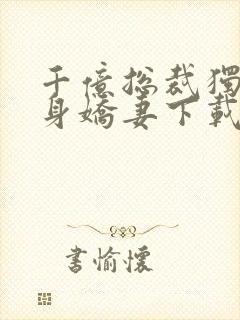 千億總裁獨
身嬌妻下載
書愉懷